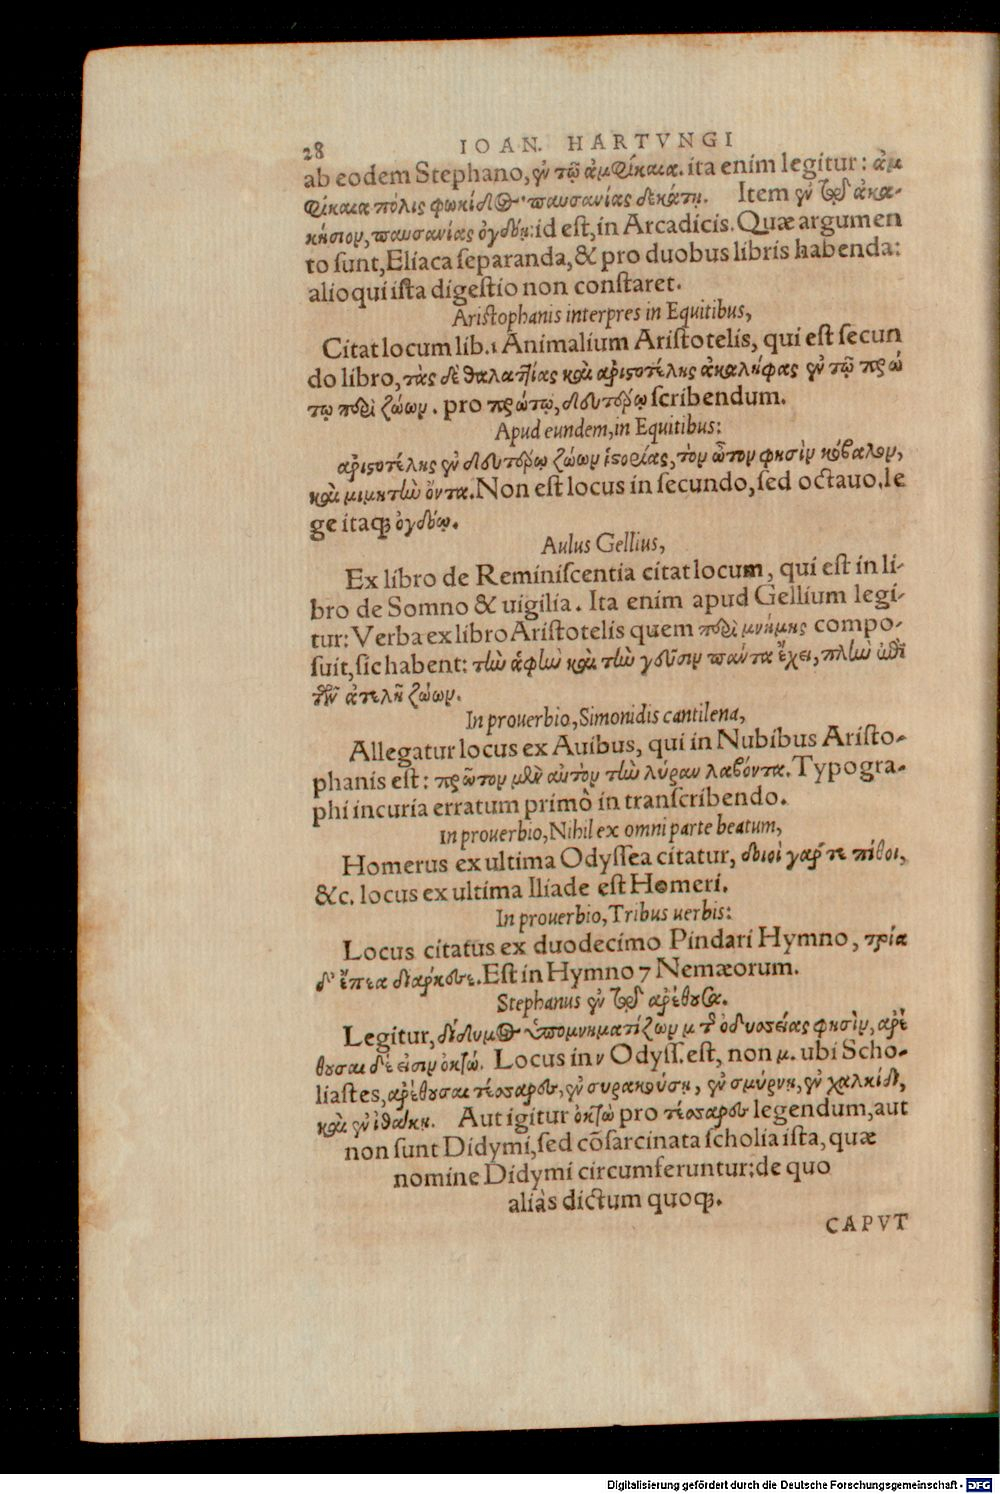 28 IOAN. HARTVNGI
ab eodem Stephano, ἐν τῷ ἀμφίκαια. ita enim legitur: ἀμ
φίκαια πόλις φωκίδος· παυσανίας δεκάτῃ. Item ἐν τῷ ἀκα-
κήσιον, παυσανίας ὀγδόῃ: id est, in Arcadicis. Quæ argumen
to sunt, Eliaca separanda, & pro duobus libris habenda:
alioqui ista digestio non constaret.
Aristophanis interpres in Equitibus,
Citat locum lib. 1 Animalium Aristotelis, qui est secun
do libro, τὰς δὲ θαλαττίας καὶ ἀριστοτέλης ἀκαλήφας ἐν τῷ πρώ
τῳ περὶ ζώων. pro πρώτῳ, δευτέρῳ scribendum.
Apud eundem, in Equitibus:
ἀριστοτέλης ἐν δευτέρῳ ζώων ἱστορίας, τὸν ὦτον φησὶν κόβαλον,
καὶ μιμητὴν ὄντα. Non est locus in secundo, sed octauo. le
ge itaq; ὀγδόῳ.
Aulus Gellius,
Ex libro de Reminiscentia citat locum, qui est in li-
bro de Somno & uigilia. Ita enim apud Gellium legi-
tur: Verba ex libro Aristotelis quem περὶ μνήμης compo-
suit, sic habent: τὴν ἁφὴν καὶ τὴν γεῦσιν πάντα ἔχει, πλὴν εἴ τι
τῶν ἀτελῆ ζώων.
In prouerbio, Simonidis cantilena,
Allegatur locus ex Auibus, qui in Nubibus Aristo-
phanis est: πρῶτον μὲν αὐτὸν τὴν λύραν λαβόντα. Typogra-
phi incuria erratum primò in transcribendo.
In prouerbio, Nihil ex omni parte beatum,
Homerus ex ultima Odyssea citatur, δοιοὶ γάρ τε πίθοι,
&c. locus ex ultima Iliade est Homeri.
In prouerbio, Tribus uerbis:
Locus citatus ex duodecimo Pindari Hymno, τρία
δ' ἔπεα διαρκέσει. Est in Hymno 7 Nemæorum.
Stephanus ἐν τῷ ἀρέθουσα.
Legitur, δίδυμος ὑπομνηματίζων μ τῆς ὀδυσσείας φησὶν, ἀρέ
θουσαι δέ εἰσιν ὀκτώ. Locus in ν Odyss. est, non μ. ubi Scho-
liastes, ἀρέθουσαι τέσσαρες, ἐν συρακούσῃ, ἐν σμύρνῃ, ἐν χαλκίδι,
καὶ ἐν ἰθάκῃ. Aut igitur ὀκτὼ pro τέσσαρες legendum, aut
non sunt Didymi, sed cōsarcinata scholia ista, quæ
nomine Didymi circumferuntur: de quo
aliàs dictum quoq;.
CAPVT
Digitalisierung gefördert durch die Deutsche Forschungsgemeinschaft - DFG